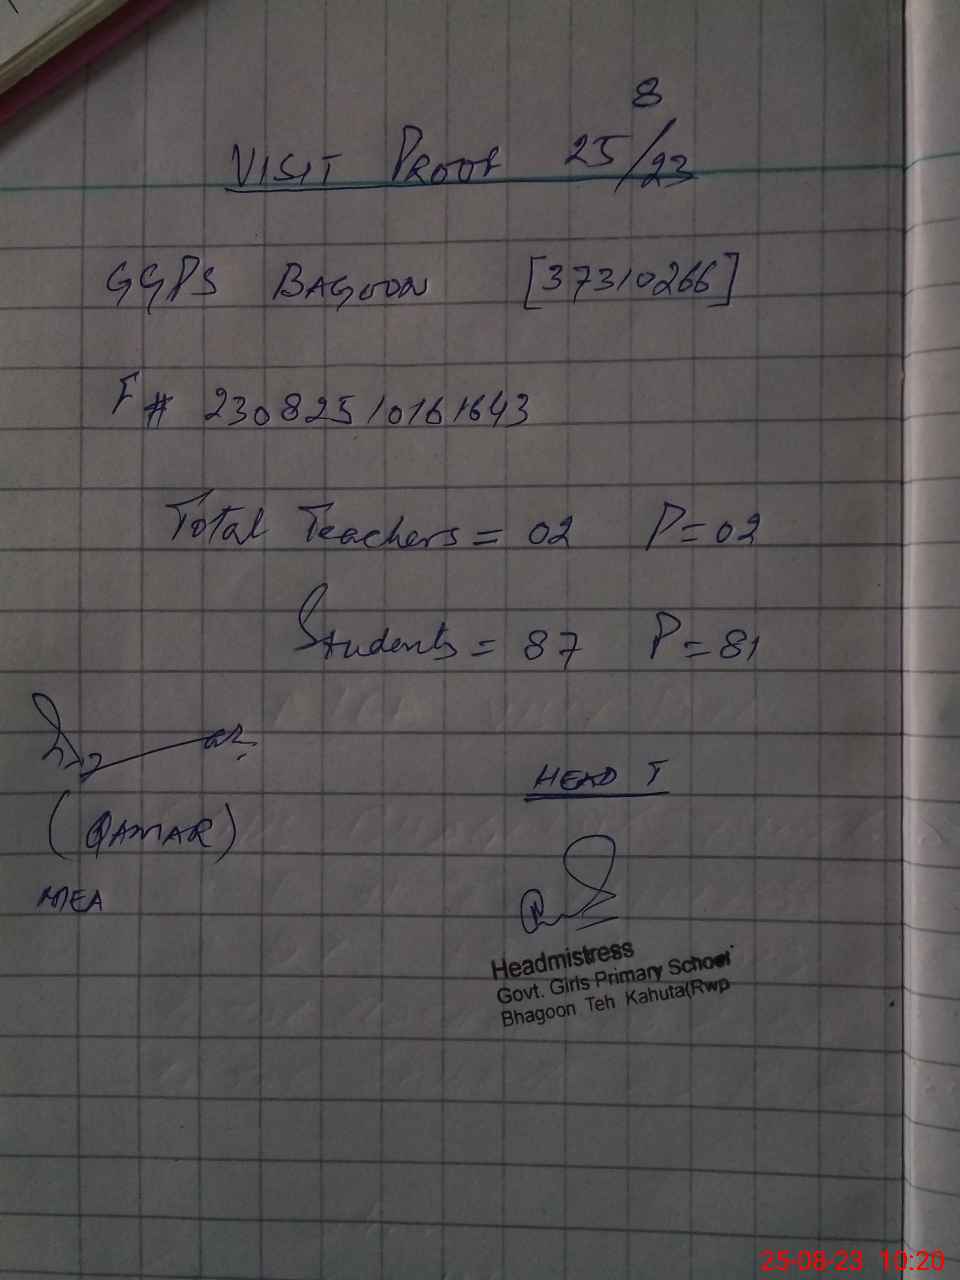 8
VISIT PROOF 25/23
GGPS BAGOON [37310266]
F# 23082510161643
Total Teachers = 02 P=02
Students = 87 P=81
(QAMAR)
MEA
HEAD T
Headmistress
Govt. Girls Primary School
Bhagoon Teh Kahuta(Rwp
25-08-23 10:20